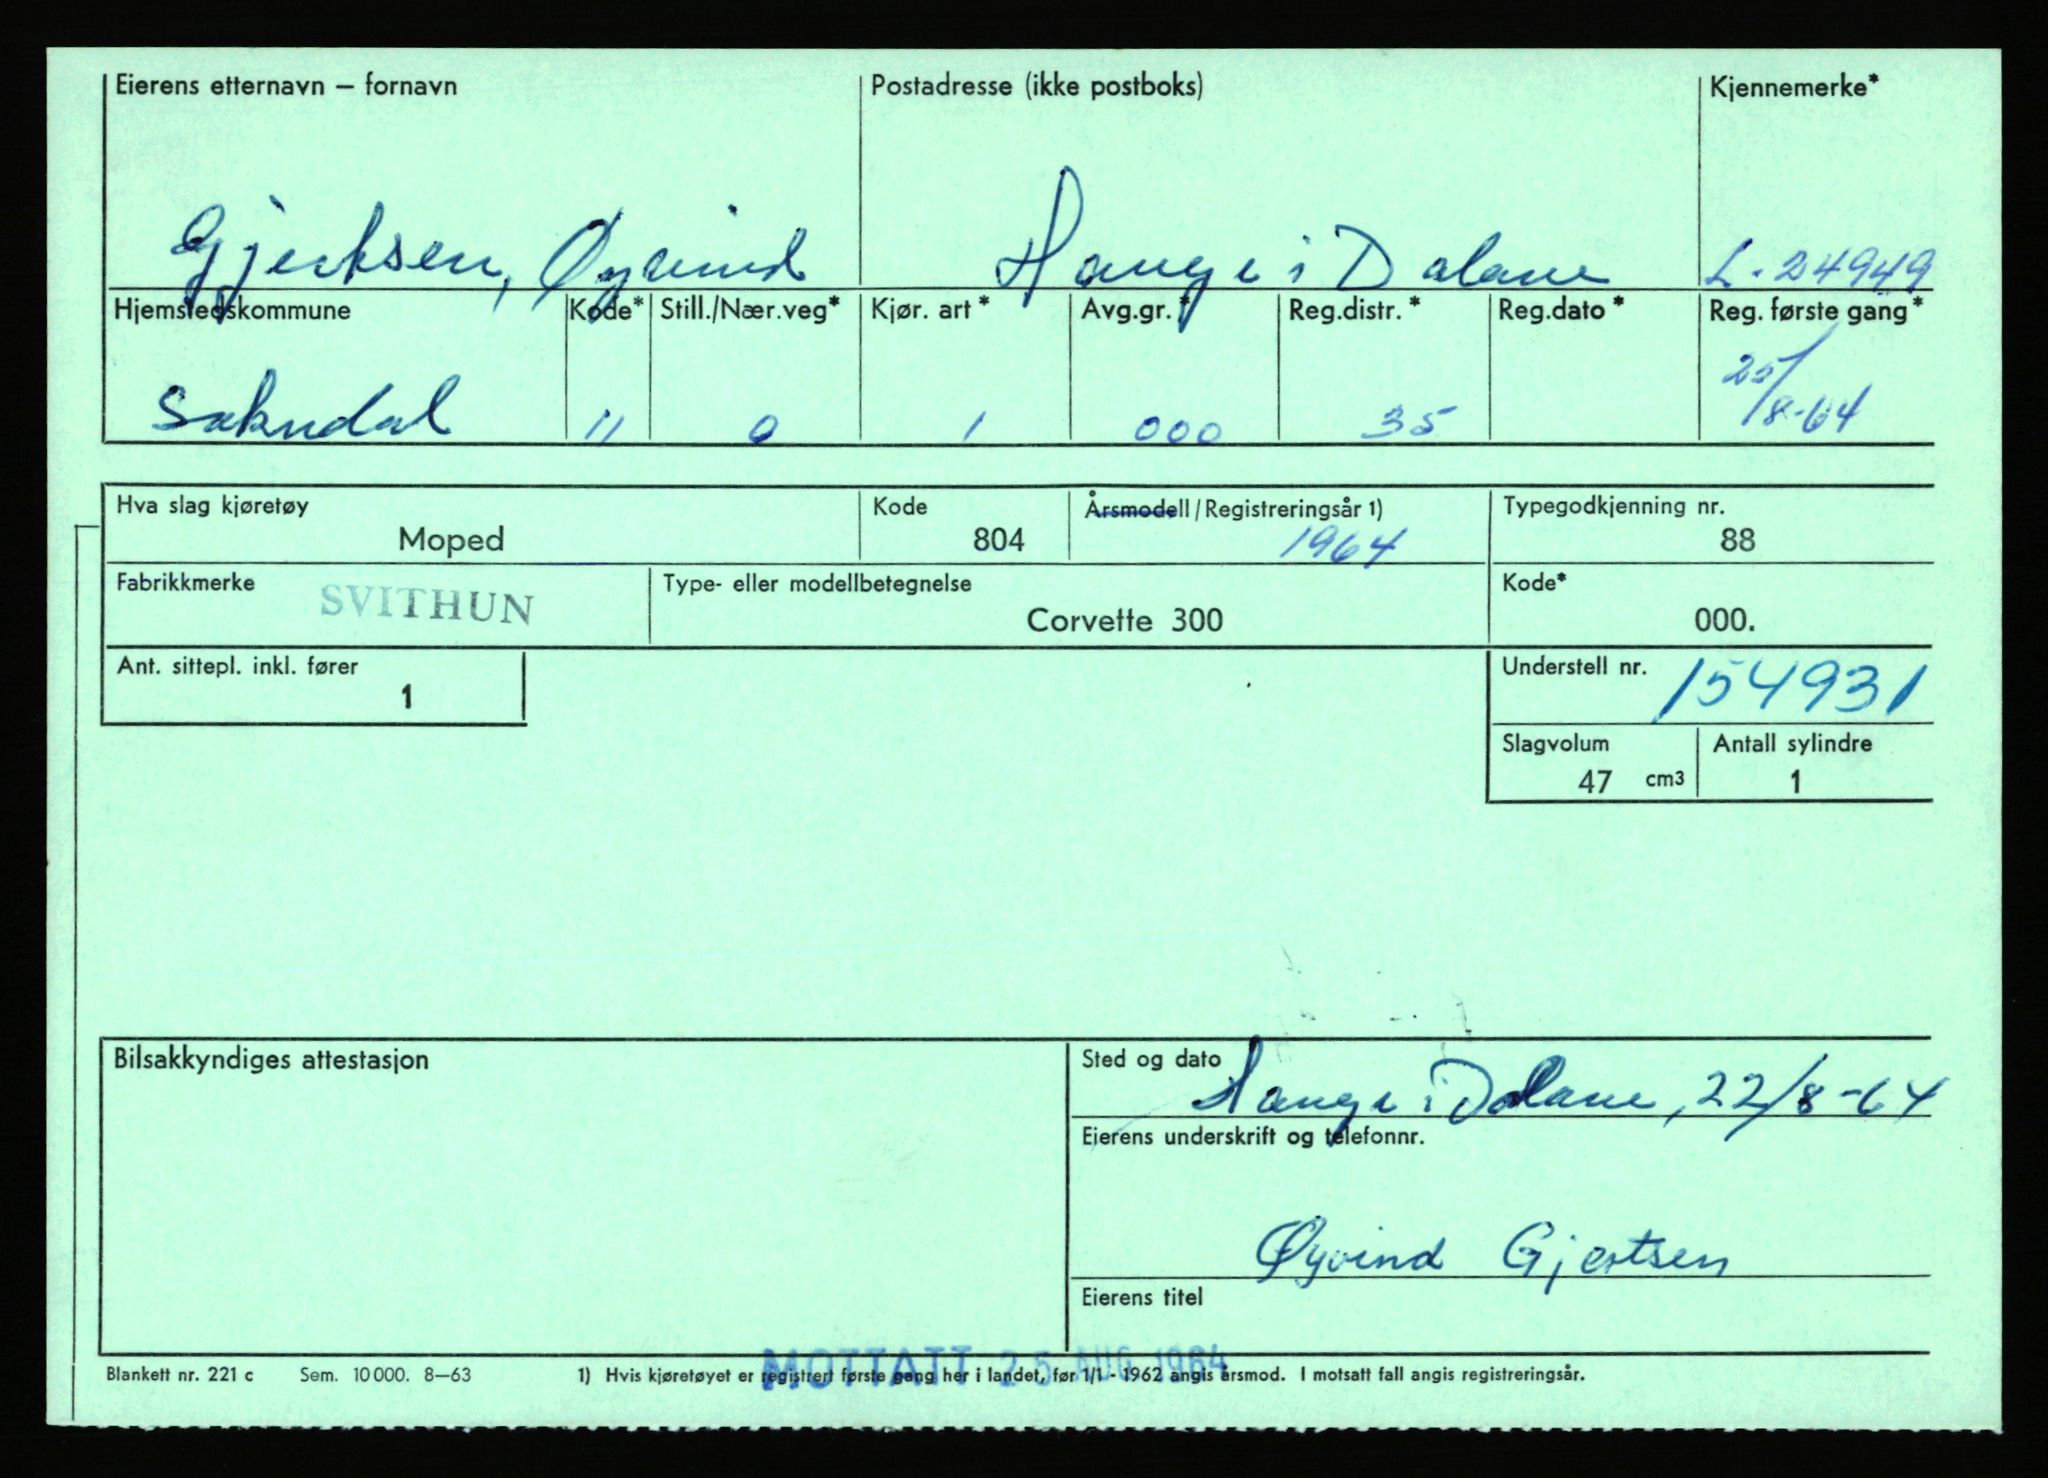 Eierens etternavn – fornavn Postadresse (ikke postboks) Kjennemerke*
Gjertsen, Øyvind Hauge i Dalane L-24949
Hjemstedskommune Kode* Still./Nær.veg* Kjør. art* Avg.gr.* Reg.distr.* Reg.dato* Reg. første gang*
Sokndal 11 0 1 000 35 25/8-64
Hva slag kjøretøy Kode Årsmodell/Registreringsår 1) Typegodkjenning nr.
Moped 804 1964 88
Fabrikkmerke SVITHUN Type- eller modellbetegnelse Kode*
Corvette 300 000.
Ant. sittepl. inkl. fører Understell nr. 154931
1
Slagvolum Antall sylindre
47 cm3 1
Bilsakkyndiges attestasjon Sted og dato
Hauge i Dalane, 22/8-64
Eierens underskrift og telefonnr.
Øyvind Gjertsen
Eierens titel
MOTTATT 25 AUG 1964
Blankett nr. 221 c Sem. 10000. 8–63 1) Hvis kjøretøyet er registrert første gang her i landet, før 1/1 - 1962 angis årsmod. I motsatt fall angis registreringsår.